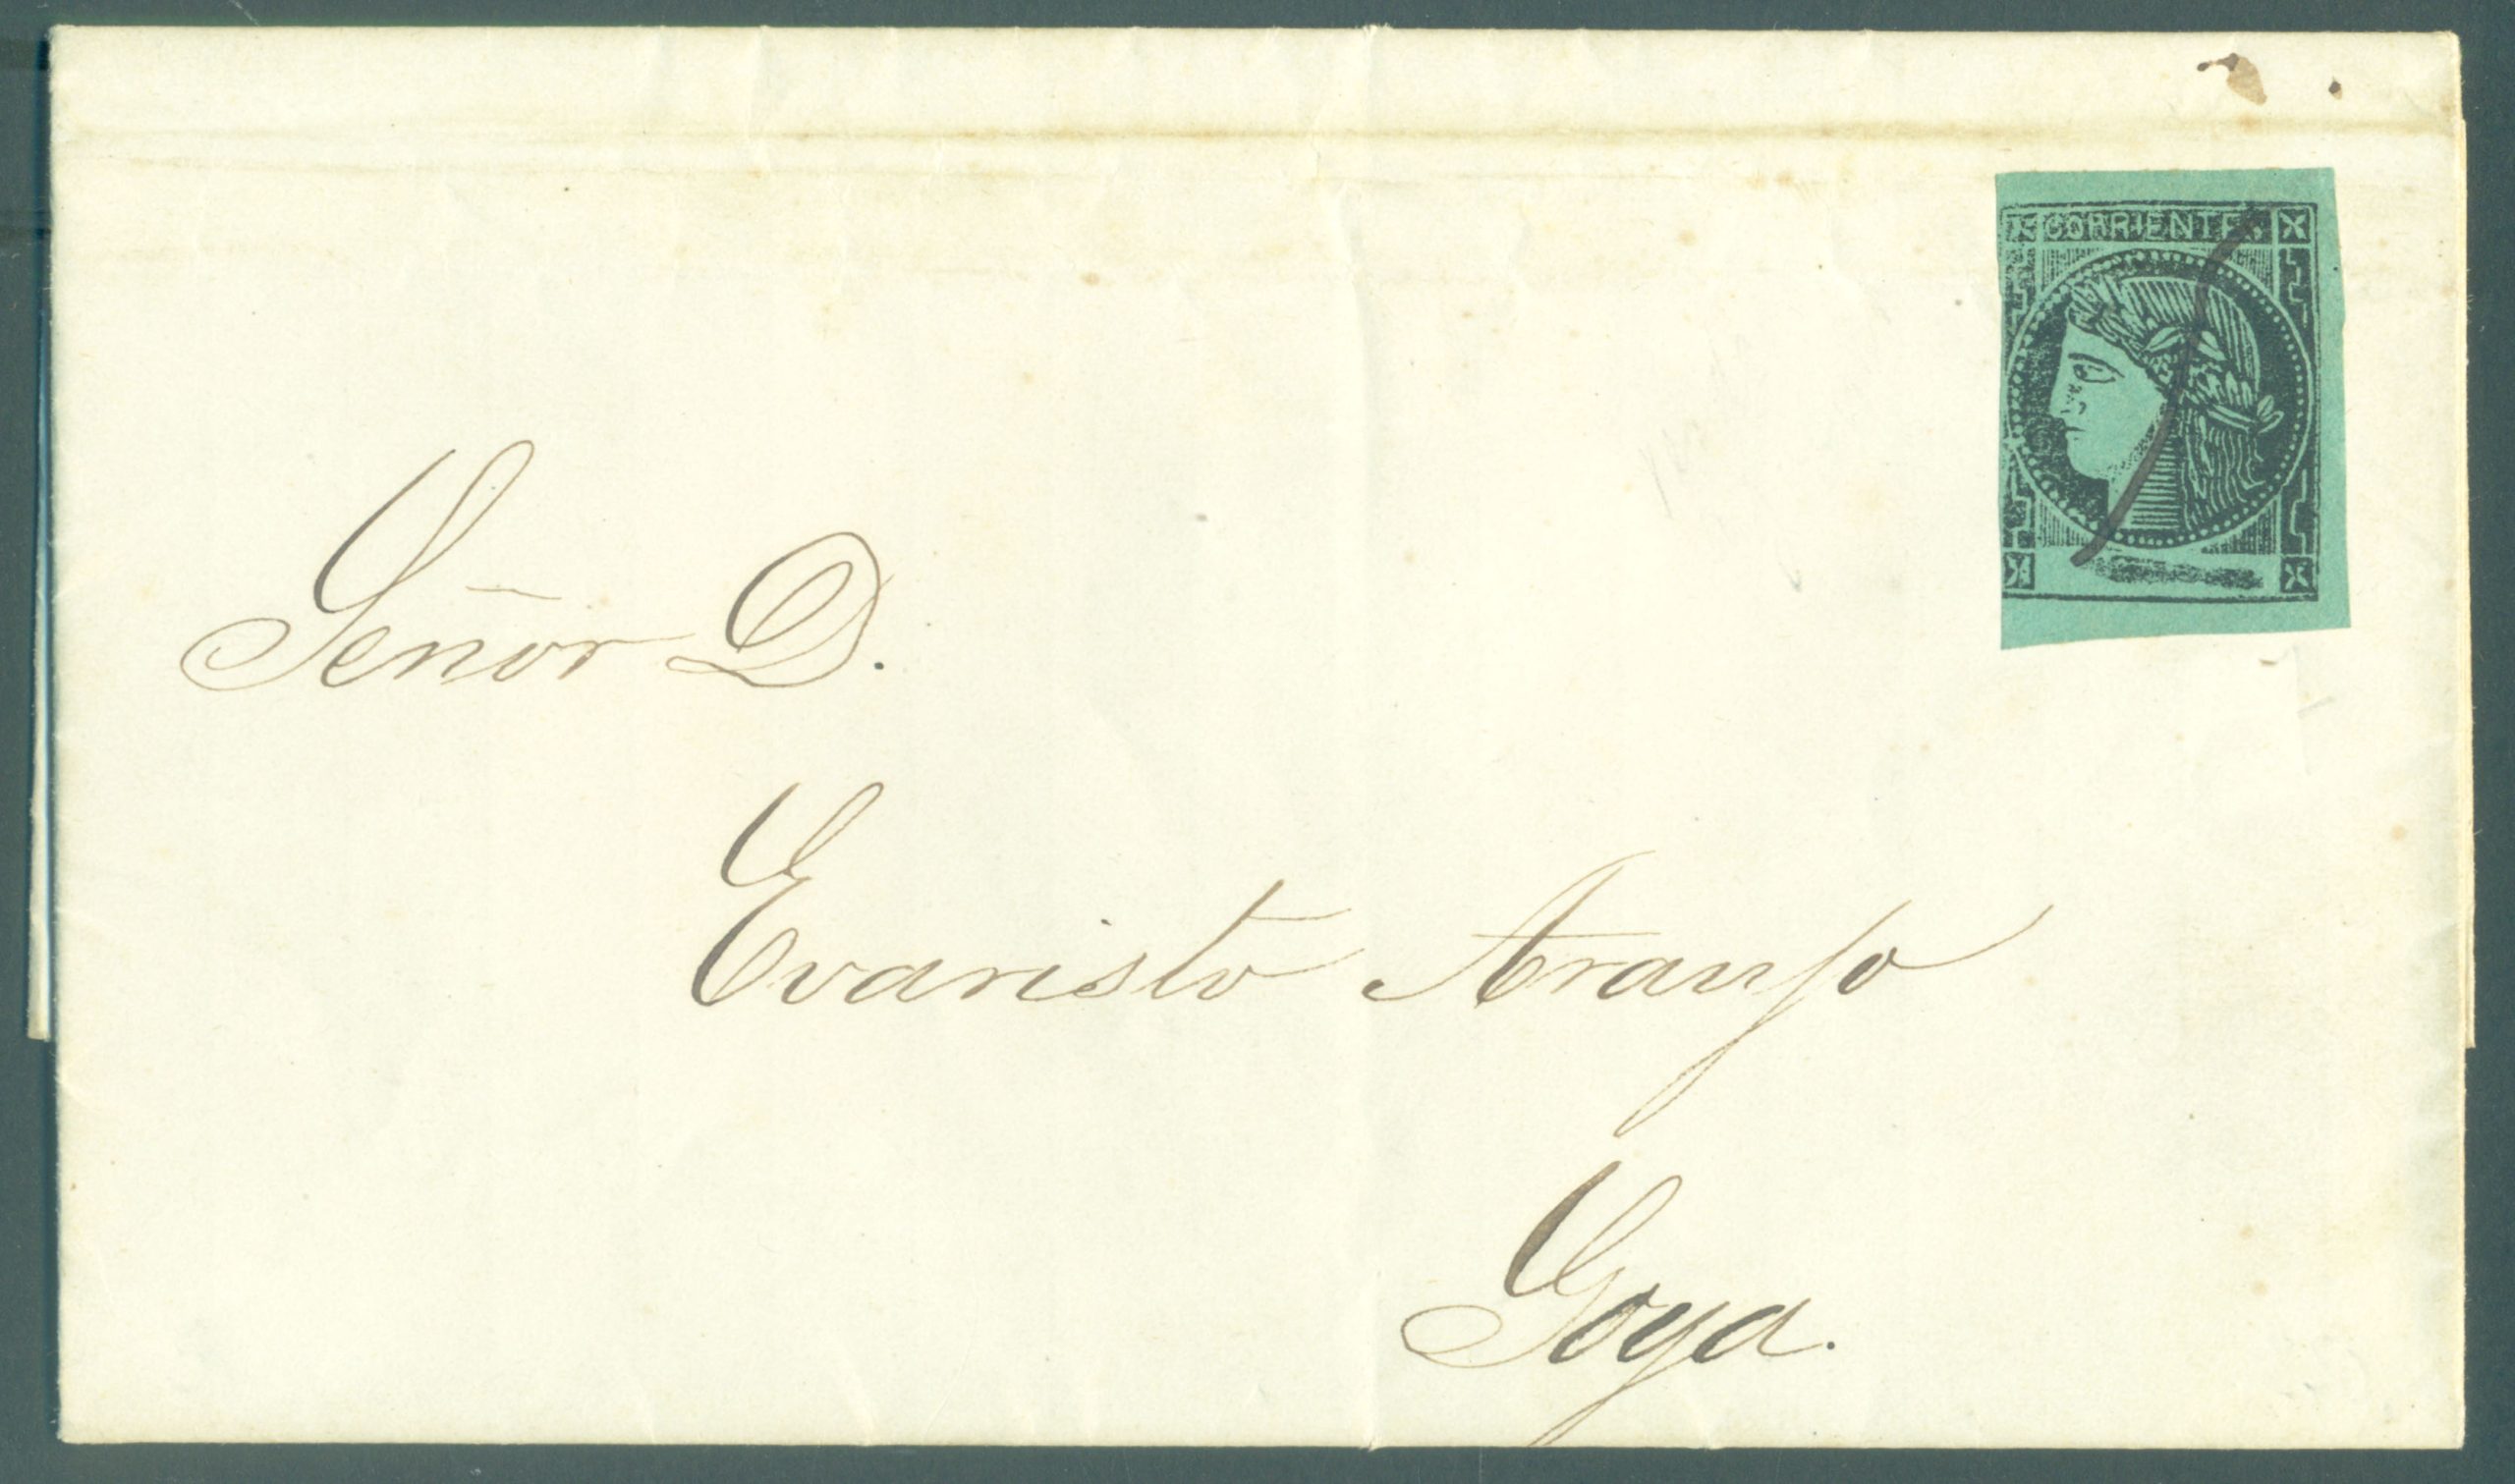 CORRIENTES
Señor D.
Evaristo Araujo
Goya.